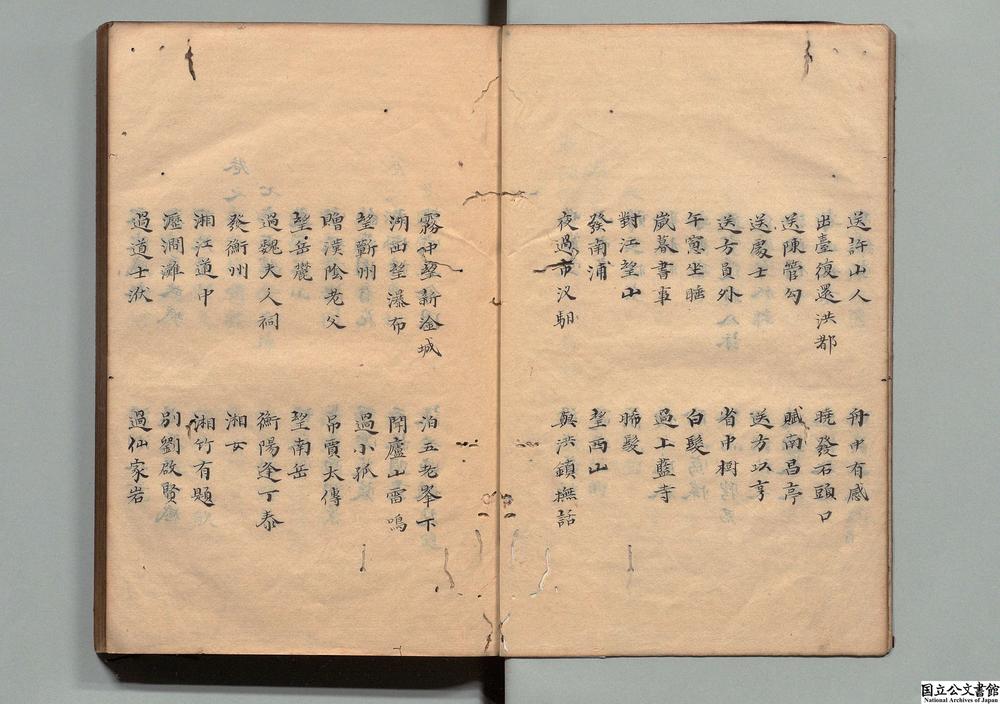 送許山人　舟中有感
出臺復還洪都　曉發石頭口
送陳管勾　賦南昌亭
送處士　送方以亨
送方員外　省中樹
午窓坐睡　白髮
歲暮書事　過上藍寺
對江望山　晞髮
發南浦　望西山
夜過市汊馹　與洪鎮撫話
霧中望新淦城　泊五老峯下
湖西望瀑布　聞廬山雷鳴
望蘄州　過小孤
贈漢陰老父　吊賈太傅
望岳麓　望南岳
過魏夫人祠　衡陽逢丁泰
發衡州　湘女
湘江道中　湘竹有題
瀝澗灘　別劉啟賢
過道士洑　過仙家岩
国立公文書館
National Archives of Japan